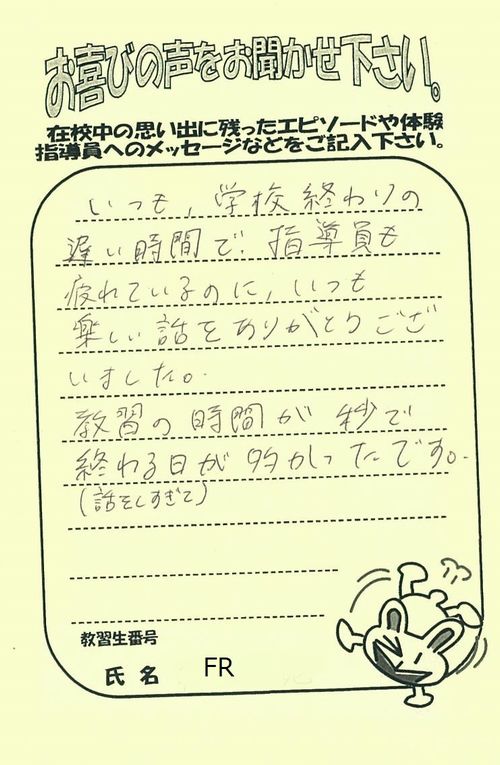 お喜びの声をお聞かせ下さい。
在校中の思い出に残ったエピソードや体験
指導員へのメッセージなどをご記入下さい。
いつも、学校終わりの
遅い時間で、指導員も
疲れているのに、いつも
楽しい話をありがとうござ
いました。
教習の時間が秒で
終わる日が多かったです。
(話をしすぎて)
教習生番号
氏名 FR